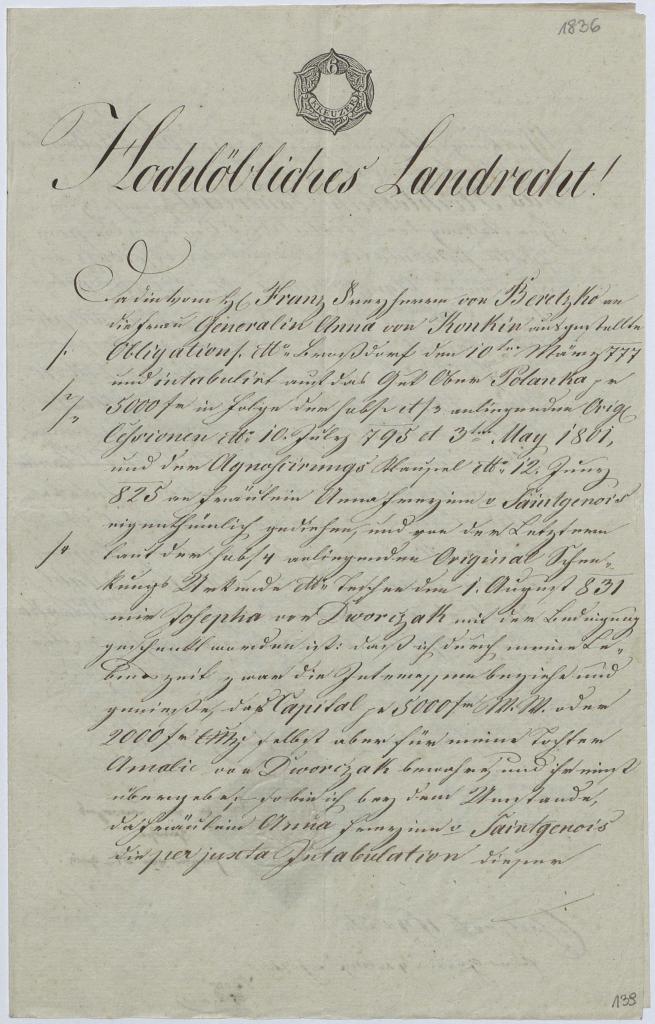 1836
6
KREUZER
Hochlöbliches Landrecht!
Da die vom H Franz Freyherrn von Beretzko an
die Frau Generalin Anna von Konkin ausgestellte
/. Obligation /. dto Großdorf den 10ten März 777
und intabulirt auf das Gut Ober Polanka pr
/2/3 5000 fr in Folge der sub /2 et /3 anliegenden Orig
Cessionen dto 10. July 795 et 3ten May 1801,
und der Agnoscirungs Klausel dto 12. Juny
825 an Fräulein Anna Freyinn v Saintgenois
eigenthümlich gediehen, und von der Letztern
/4 laut der sub /4 anliegenden Original Schen-
kungs Urkunde dto Teschen den 1. August 831
mir Josepha von Dworczak mit der Bedingung
geschenkt worden ist: daß ich durch meine Le-
benszeit zwar die Interessen beziehe und
genieße, das Capital pr 5000 fr W. W. oder
2000 fr CMz selbst aber für meine Tochter
Amalie von Dworczak bewahre, und ihr einst
übergebe: so bin ich bey dem Umstande,
da Fräulein Anna Freyinn v Saintgenois
die per juxta Intabulation dieser
139